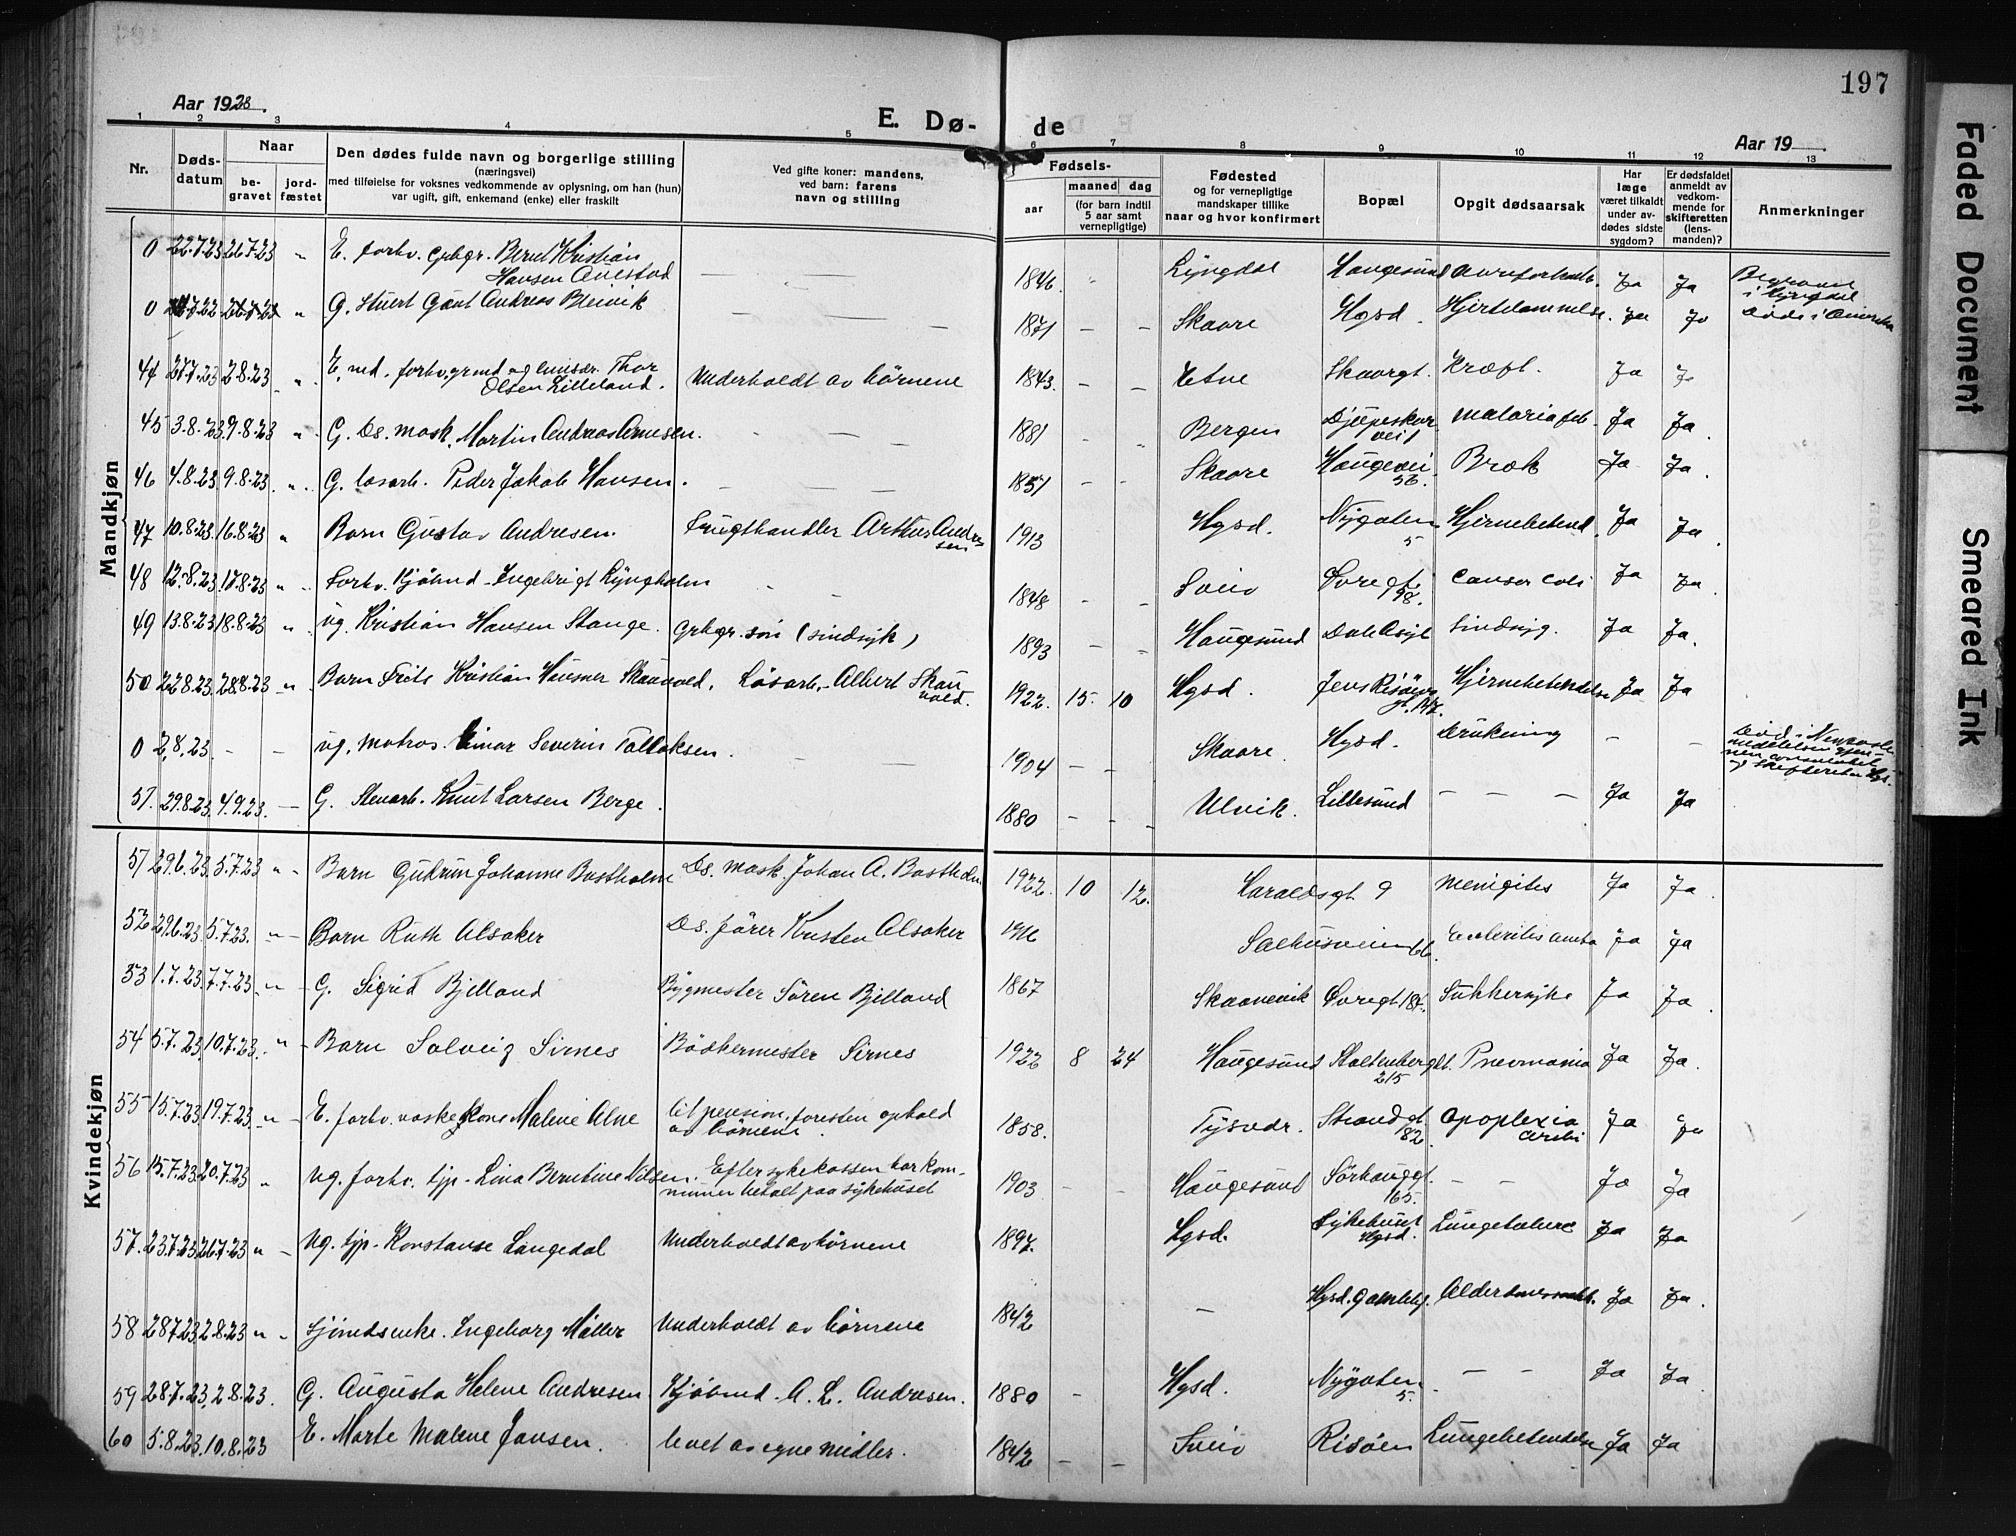 197
Aar 1928.
E. Dø- de
Aar 19
1 2 3 4 5 6 7 8 9 10 11 12 13
Nr.
Døds-
datum
Naar
be-
gravet
jord-
fæstet
Den dødes fulde navn og borgerlige stilling
(næringsvei)
med tilføielse for voksnes vedkommende av oplysning, om han (hun)
var ugift, gift, enkemand (enke) eller fraskilt
Ved gifte koner: mandens,
ved barn: farens
navn og stilling
Fødsels-
aar
maaned dag
(for barn indtil
5 aar samt
vernepligtige)
Fødested
og for vernepligtige
mandskaper tillike
naar og hvor konfirmert
Bopæl
Opgit dødsaarsak
Har
læge
været tilkaldt
under av-
dødes sidste
sygdom?
Er dødsfaldet
anmeldt av
vedkom-
mende for
skifteretten
(lens-
manden)?
Anmerkninger
Mandkjøn
0 22.7.23 26.7.23 " E. forhv. grbgr. Bernt Kristian
Hansen Auestad — — 1846. " Lyngdal Haugesund Ja Ja Begravet
i Lyngdal
0 " G. Stuert Gaut Andreas Bleivik — — — 1871 – – Skaare Hgsd. Hjertelammelse. Ja Ja Død i Amerika
44 27.7.23 2.8.23 " E. ned. forhv. grmd og emisær. Thor
Olsen Lilleland. Underholdt av børnene 1843. – – Etne Skaaregt. Kræft. Ja Ja
45 3.8.23 9.8.23 " G. Ds. mask. Martin Andreas Arnesen. — — — 1881 – " Bergen Djupeskar
veit malariafeb. Ja Ja.
46 4.8.23. 9.8.23. " G. løsarb. Peder Jakob Hansen. — — — 1851 – – Skaare Haugevei.
56. Bræk Ja Ja.
47 10.8.23. 16.8.23 " Barn Gustav Andresen. Frugthandler Arthur Andre
sen 1913 Hgsd. Nygaten
5 Hjernebetend. Ja Ja.
48 12.8.23. 17.8.23 " Forhv. Kjøbmd. Ingebrigt Lyngholm – – 1848 – – Sveio Øvregt.
98. Cancer coli Ja Ja
49 13.8.23 18.8.23 " ug. Kristian Hansen Stange. Grbgr. søn (sindsyk) 1893 – – Haugesund Dale Asyl Sindsyg. Ja Ja.
50 22.8.23. 28.8.23 " Barn Frits Kristian Hausner Skauvold. Løsarb. Albert Skau
vold. 1922. 15. 10 Hgsd. Jens Risøens
gt. 147. Hjernebetendelse Ja Ja
0 2.8.23 – – ug. matros. Einar Severin Tollaksen. – – 1904 – – Skaare. Hgsd. Drukning – – Død i
meddelelsen gjen-
nem konsulatet
og skifteretten Hgs.
51. 29.8.23. 4.9.23. — G. Stenarb. Knut Larsen Berge. 1880 – – Ulvik. Lillesund – – – Ja Ja
Kvindekjøn
51 29.6.23. 5.7.23 " Barn Gudrun Johanne Bastholm Ds. mask. Johan A. Bastholm. 1922. 10 12. Haraldsgt. 9 Menigites Ja Ja.
52 29.6.23. 5.7.23. " Barn Ruth Alsaker Ds. fører Kristen Alsaker 1916 Salhusveien Ja Ja
53 1.7.23. 7.7.23 " G. Sigrid Bjelland Bygmester Søren Bjelland 1867 Skaanevik Øvregt. Sukkersyke Ja Ja.
54 5.7.23 10.7.23. " Barn Solveig Sirnes Bødkermester Sirnes 1922 8 24 Haugesund Skoltenberggt.
215 Pneumonia Ja Ja.
55 15.7.23 19.7.23 " E. forhv. vaskekone Malene Alne Lit pension, foresten ophold
av børnene. 1858. Tysvær. Strandgt.
182. Apoplexia
cerebri Ja Ja
56 15.7.23 20.7.23 " ug. forhv. tjp. Lina Berntine Nilsen. Efter sykekassen har kom-
munen betalt paa sykehuset 1903 – – Haugesund Sørhauggt.
165. – – Ja Ja
57. 23.7.23 26.7.23 " ug. tjp. Konstanse Langedal Underholdt av børnene 1897. Hgsd. Sykehuset
Hgsd. Lungetuberc Ja Ja
58 28.7.23 2.8.23 " Sjømdsenke. Ingeborg Møller Underholdt av børnene 1842 – Hgsd. Gamleh. Alderdomssvakh. Ja Ja.
59 28.7.23. 2.8.23. G. Augusta Helene Andresen Kjøbmd. A. L. Andresen. 1880 – Hgsd. Nygaten
5. – – Ja Ja.
60 5.8.23. 10.8.23 E. Marte Malene Jansen. Levet av egne midler. 1842 – – Sveio Risøen Lungebetendelse Ja Ja
Faded Document
Smeared Ink